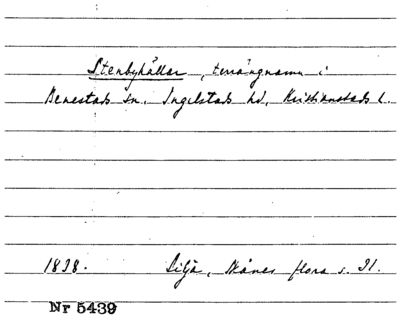 Stenbyhällar, terrängnamn i
Benestads sn. Ingelstads hd, Kristianstads l.
1838. Lilja, Skånes flora s. 31.
Nr 5439